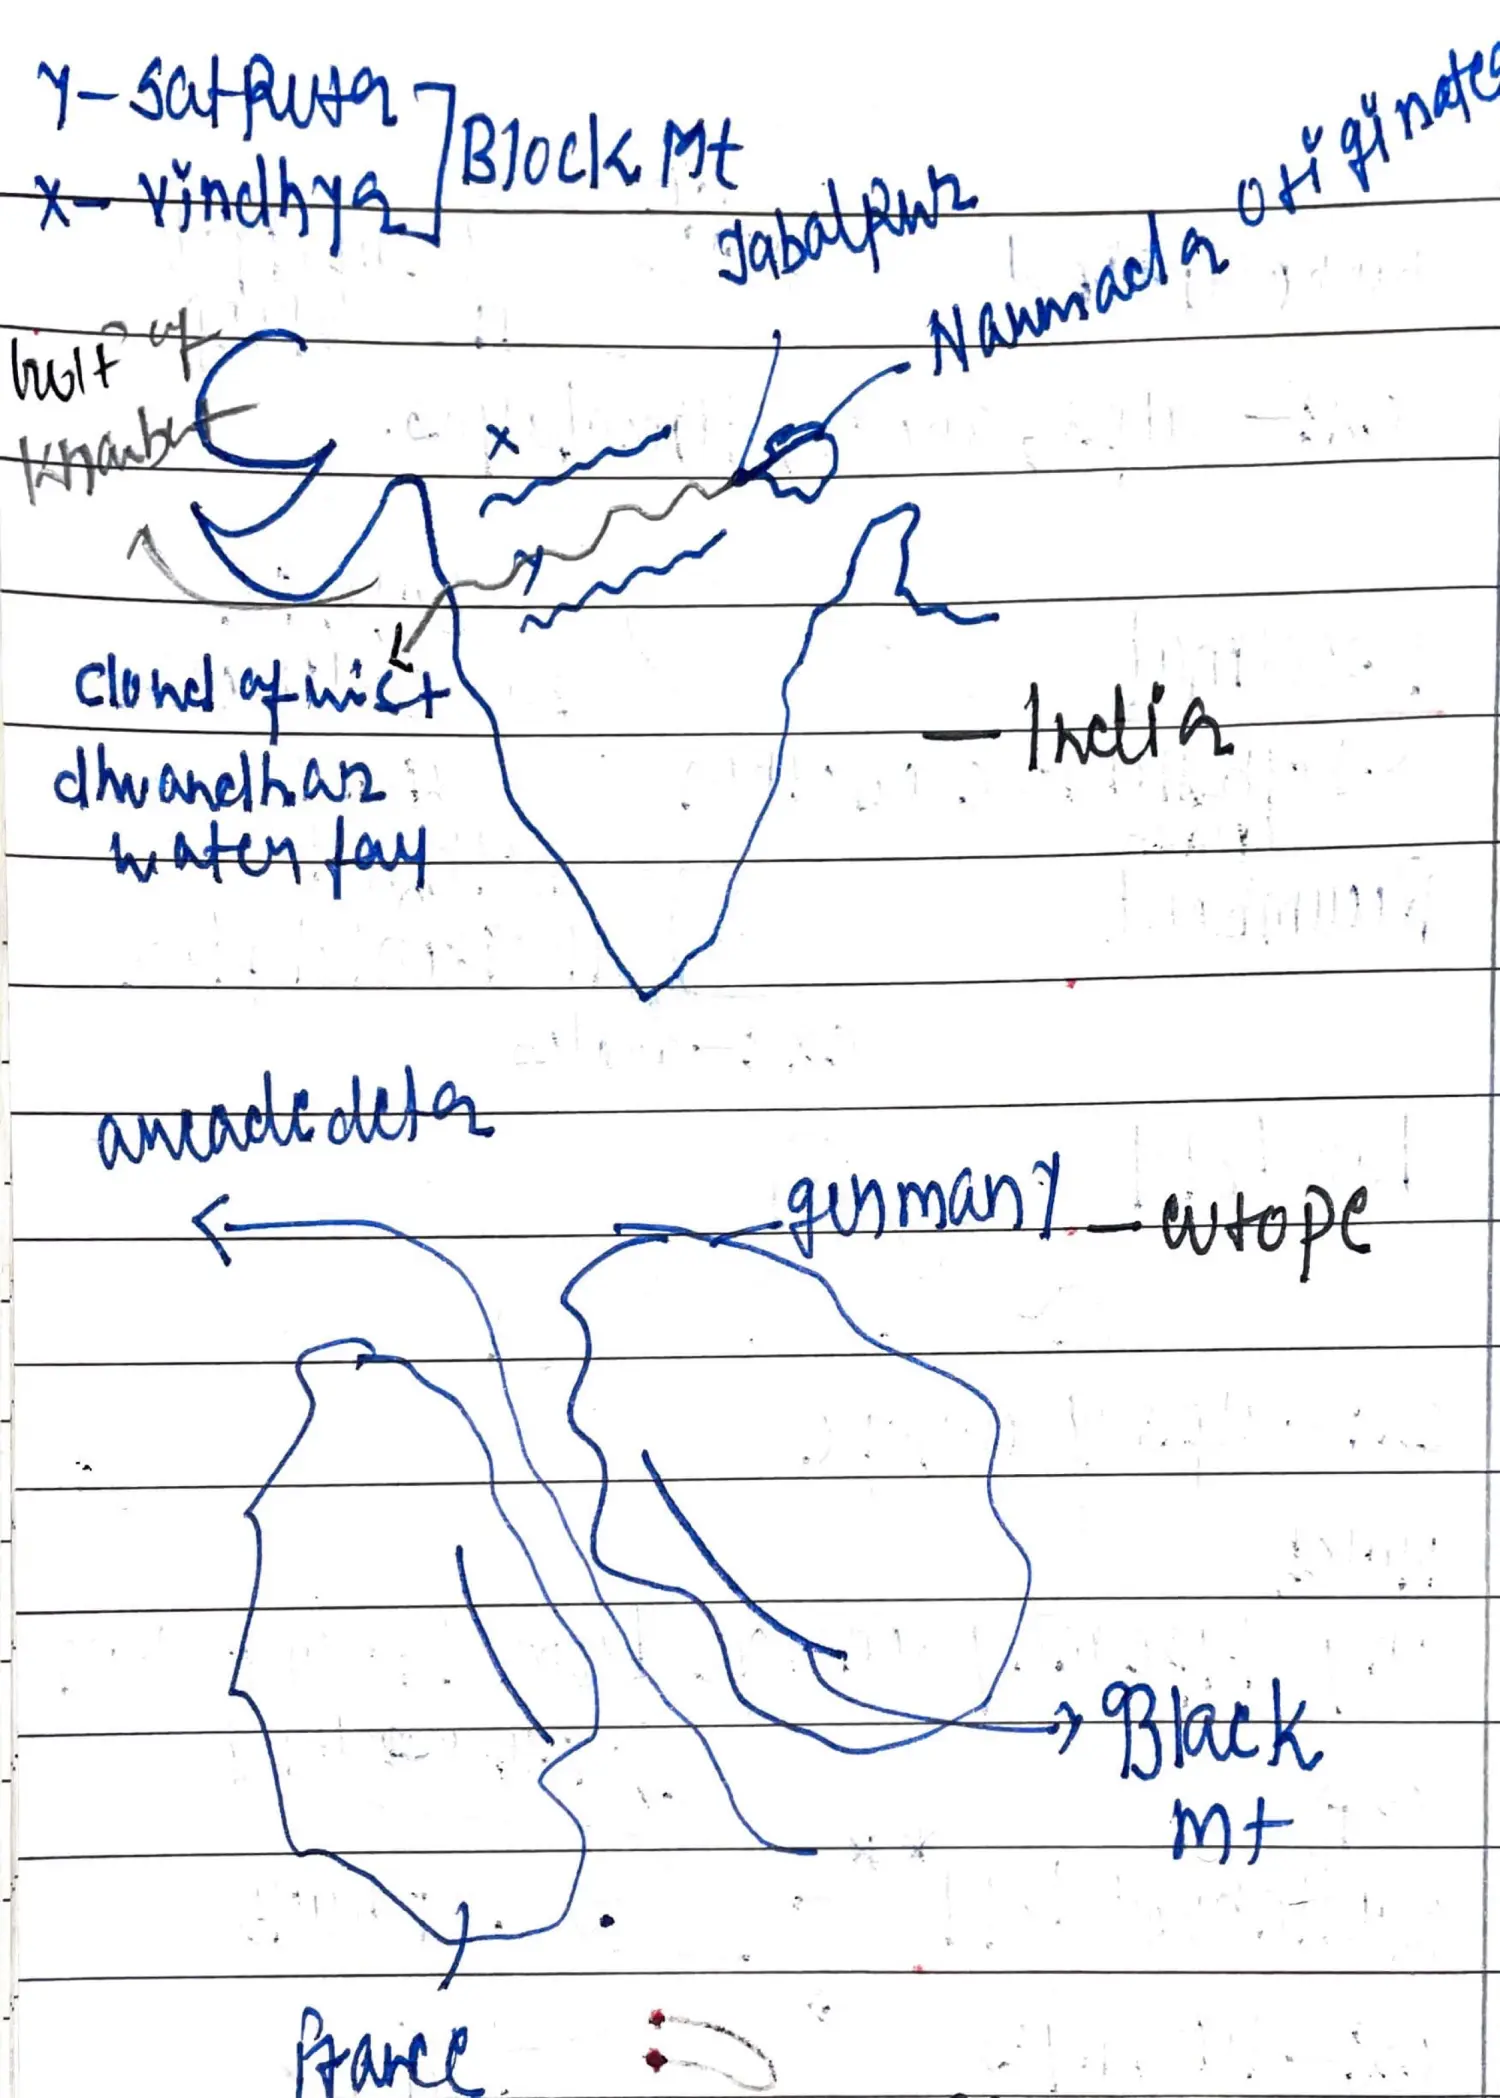 Y- Satpura
X- Vindhya
Block Mt
Jabalpur
Narmada originates
of
Khambat
X
Y
cloud of mist
dhuandhar
water fay
- India
germany - europe
Black
Mt
France